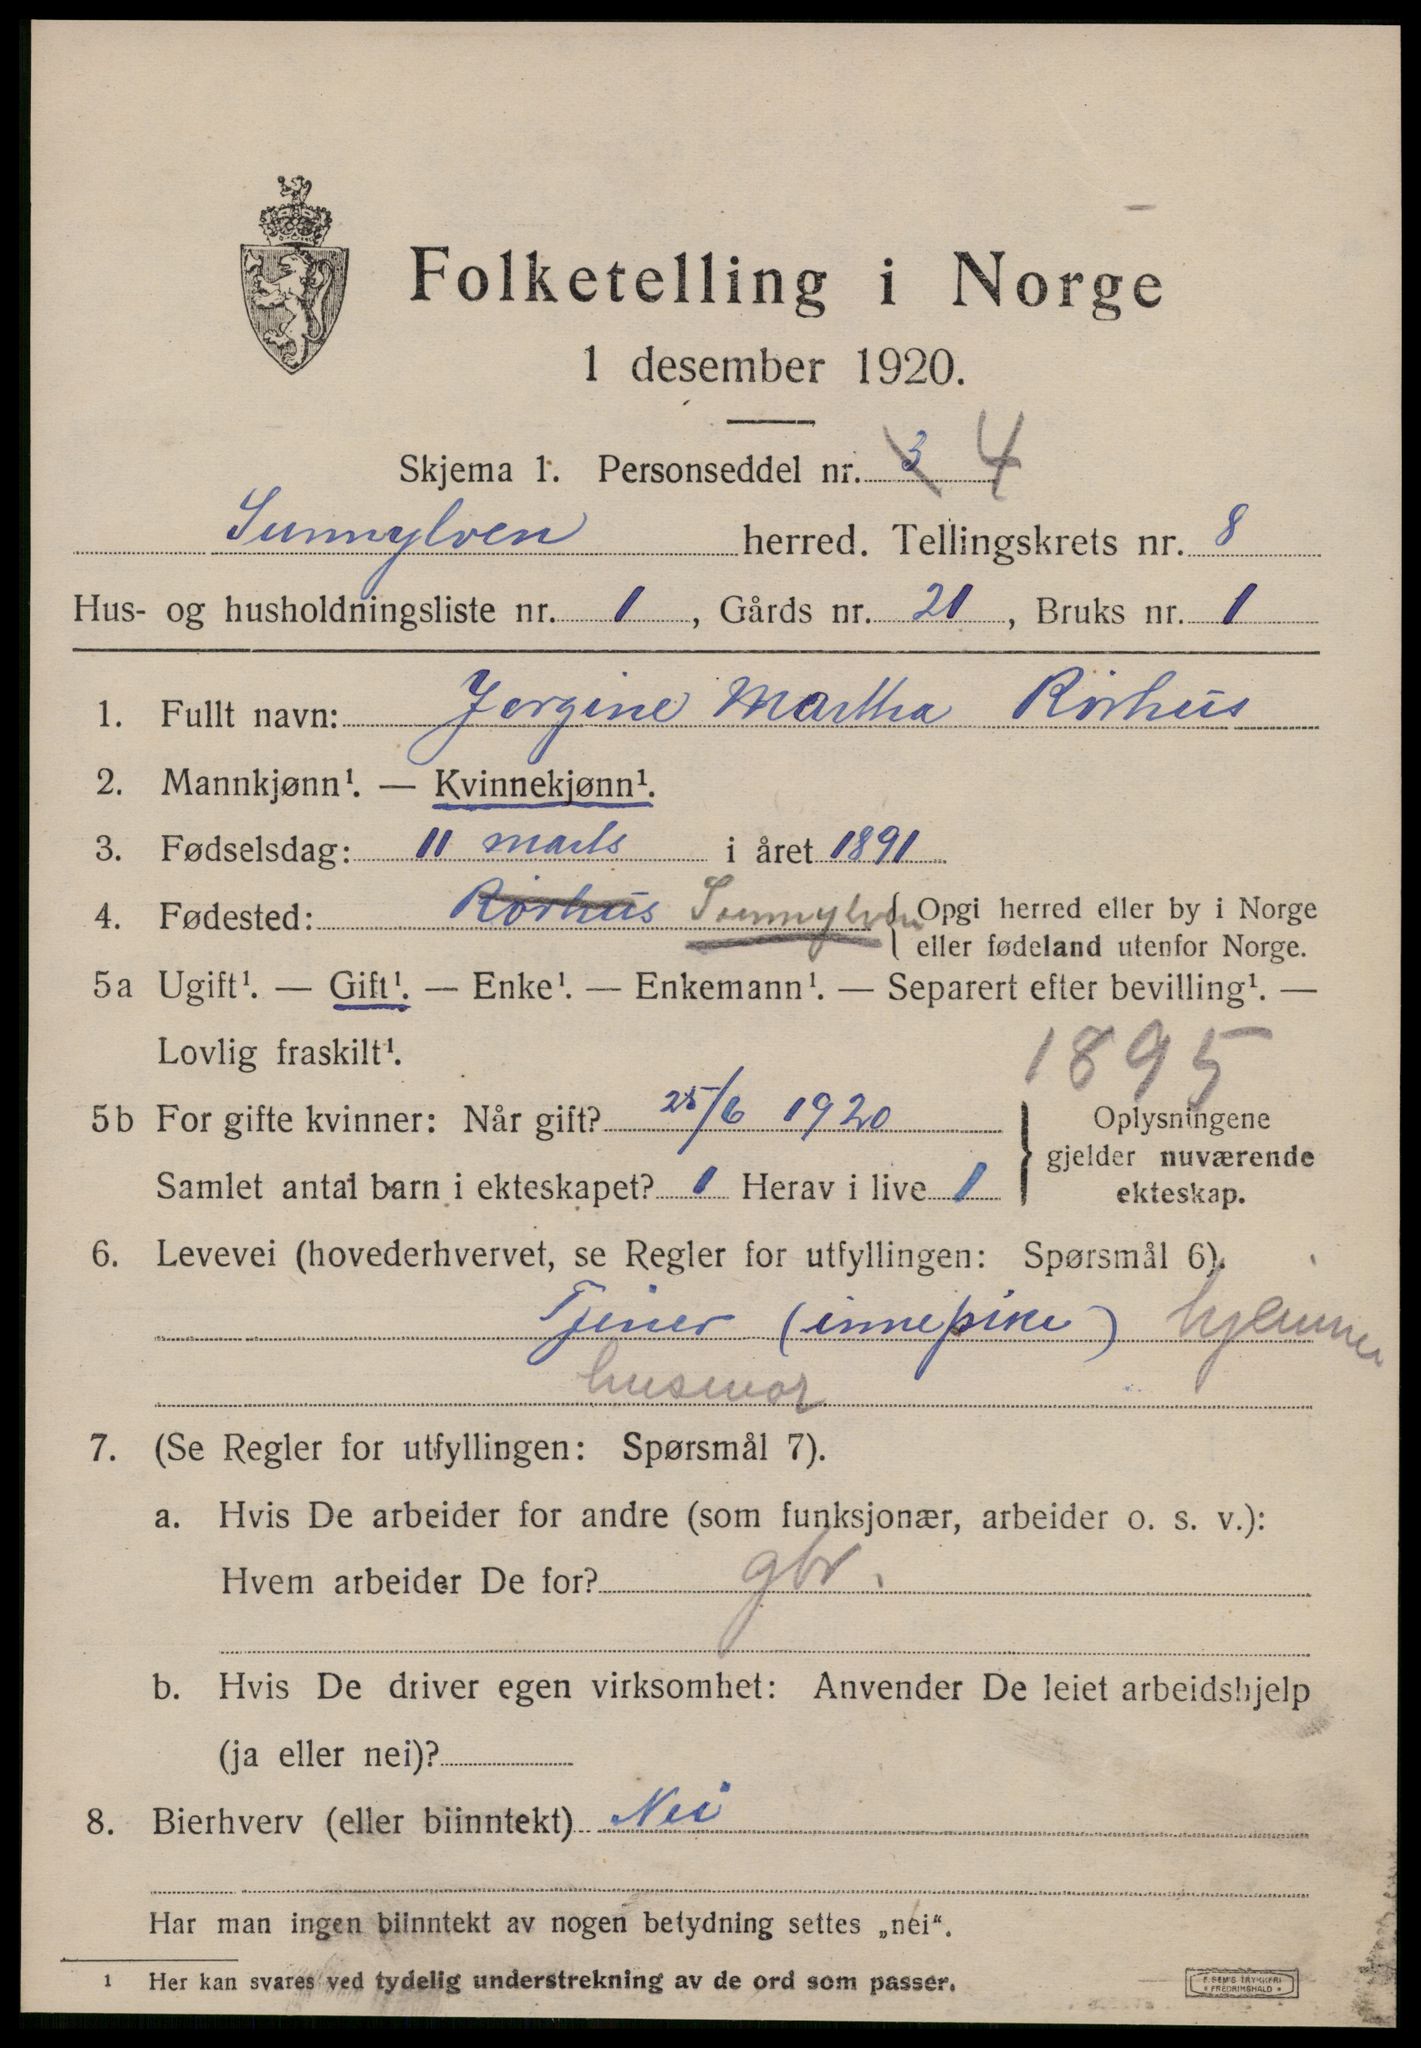 Folketelling i Norge
1 desember 1920.
Skjema 1. Personseddel nr. 3 4
Sunnylven herred. Tellingskrets nr. 8
Hus- og husholdningsliste nr. 1, Gårds nr. 21, Bruks nr. 1
1. Fullt navn: Jorgine Martha Rörhus
2. Mannkjønn¹. — Kvinnekjønn¹.
3. Fødselsdag: 11 marts i året 1891
4. Fødested: Rörhus Sunnylven { Opgi herred eller by i Norge
eller fødeland utenfor Norge.
5a Ugift¹. — Gift¹. — Enke¹. — Enkemann¹. — Separert efter bevilling¹. —
Lovlig fraskilt¹.
1895
5b For gifte kvinner: Når gift? 25/6 1920
Samlet antal barn i ekteskapet? 1 Herav i live 1
} Oplysningene
gjelder nuværende
ekteskap.
6. Levevei (hovederhvervet, se Regler for utfyllingen: Spørsmål 6).
Tjener (innepike) hjemme
husmor
7. (Se Regler for utfyllingen: Spørsmål 7).
a. Hvis De arbeider for andre (som funksjonær, arbeider o. s. v.):
Hvem arbeider De for? gbr.
b. Hvis De driver egen virksomhet: Anvender De leiet arbeidshjelp
(ja eller nei)?
8. Bierhverv (eller biinntekt) Nei
Har man ingen biinntekt av nogen betydning settes „nei“.
1 Her kan svares ved tydelig understrekning av de ord som passer.
E. SEM'S TRYKKERI
* FREDRIKSHALD *